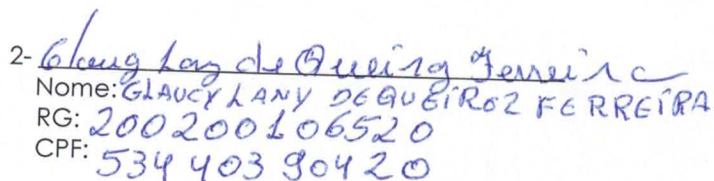 2- Glaucy Lany de Queiroz Ferreira
Nome: GLAUCY LANY DEQUEIROZ FERREIRA
RG: 200200106520
CPF: 534 403 904 20